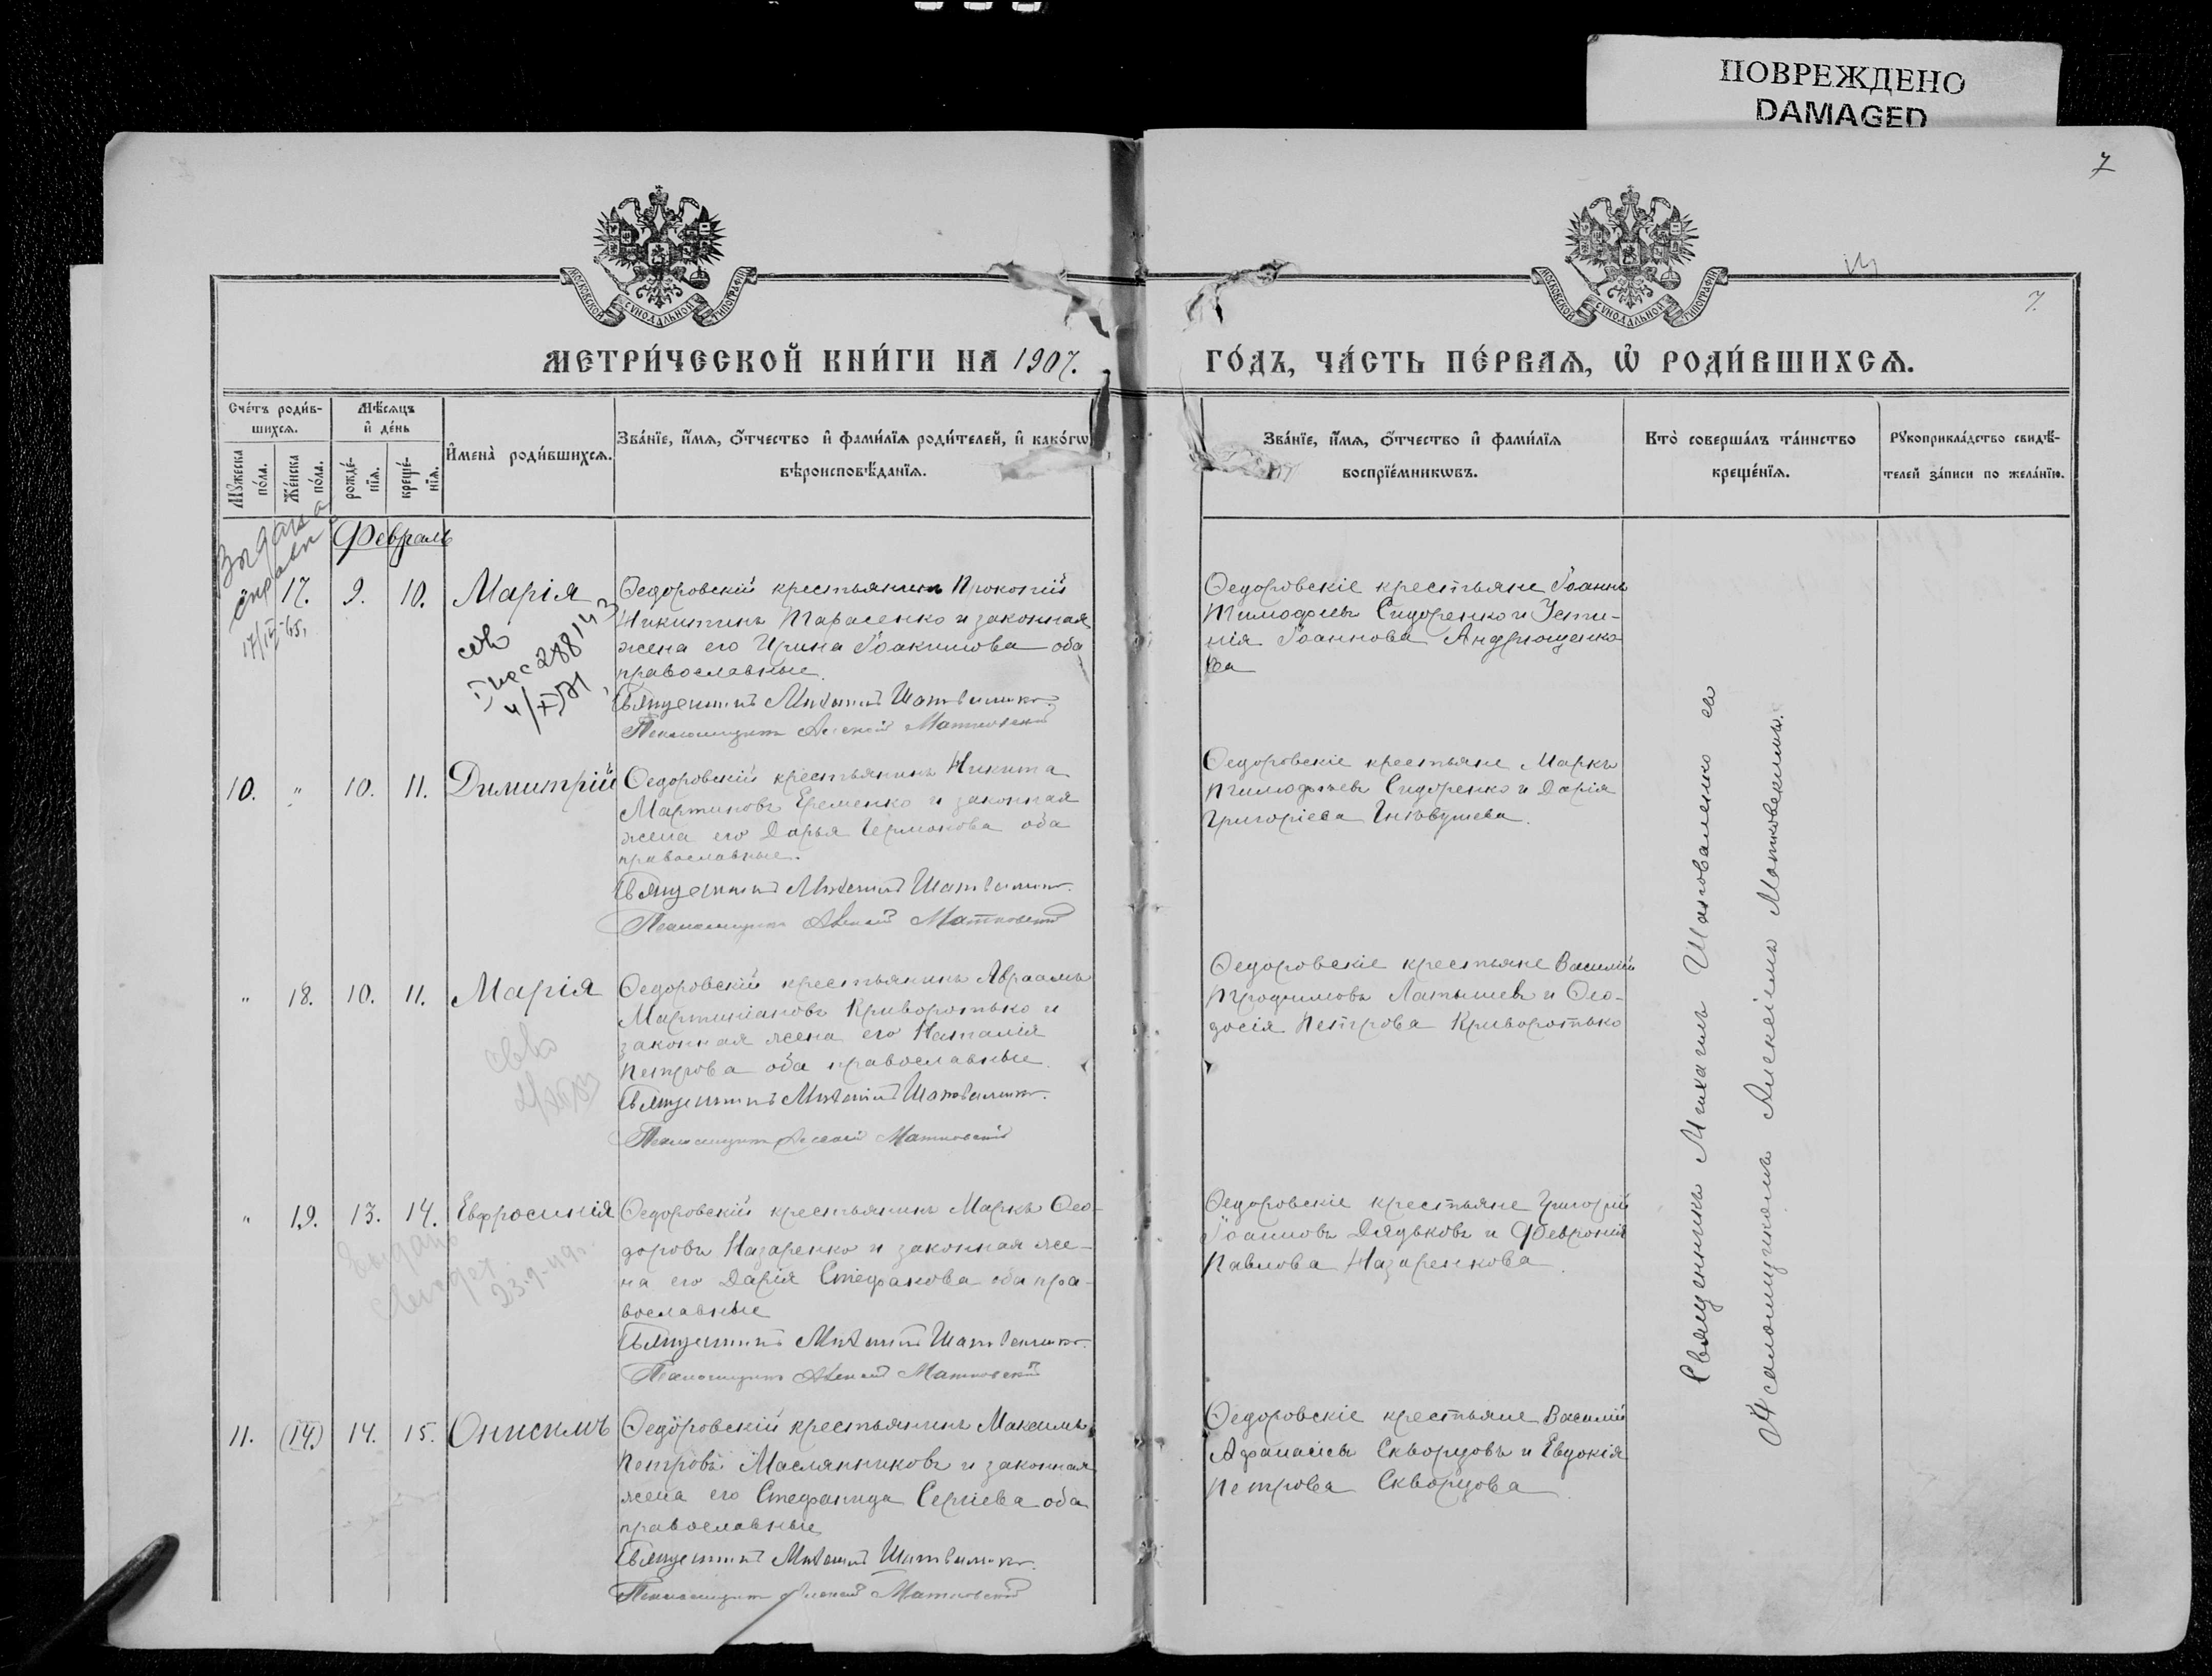 ПОВРЕЖДЕНО
DAMAGED
7
7.
МОСКОВСКОЙ СѴНОДАЛЬНОЙ ТИПОГРАФІИ
МОСКОВСКОЙ СѴНОДАЛЬНОЙ ТИПОГРАФІИ
МЕТРИ́ЧЕСКОЙ КНИ́ГИ НА 1907.
ГО́ДЪ, ЧА́СТЬ ПЕ́РВАѦ, Ѽ РОДИ́ВШИХСѦ.
Сче́тъ роди́в-
шихсѧ.
Мꙋ́жеска
по́ла.
Же́нска
по́ла.
Мѣ́сѧцъ
и҆ де́нь
рожде́-
нїѧ.
креще́-
нїѧ.
И҆мена̀ роди́вшихсѧ.
Зва́нїе, и҆́мѧ, ѻ҆́тчество и҆ фами́лїѧ роди́телей, и҆ како́гѡ
вѣроисповѣ́данїѧ.
Зва́нїе, и҆́мѧ, ѻ҆́тчество и҆ фами́лїѧ
воспрїе́мникѡвъ.
Кто̀ соверша́лъ та́инство
креще́нїѧ.
Рꙋкоприкла́дство свидѣ́-
телей за́писи по жела́нїю.
Выдана
справка
17/IV-65.
Февраль
17. 9. 10. Марія
Ѳедоровскій крестьянинъ Прокопій
Никитинъ Тарасенко и законная
жена его Ирина Іоакимова оба
православные.
Священникъ Михаилъ Шаповаленко.
Псаломщикъ Алексій Матковскій
Ѳедоровскіе крестьяне Іоаннъ
Тимофеевъ Сидоренко и Усти-
нія Іоаннова Андрющенко
ва
10. " 10. 11. Димитрій
Ѳедоровскій крестьянинъ Никита
Мартиновъ Еременко и законная
жена его Дарья Ермокова оба
православные.
Священникъ Михаилъ Шаповаленко.
Псаломщикъ Алексій Матковскій
Ѳедоровскіе крестьяне Маркъ
Тимофеевъ Сидоренко и Дарія
Григоріева
" 18. 10. 11. Марія
Ѳедоровскій крестьянинъ Авраамъ
Мартиніановъ Криворотько и
законная жена его Наталія
Петрова оба православные.
Священникъ Михаилъ Шаповаленко.
Псаломщикъ Алексій Матковскій
Ѳедоровскіе крестьяне Василій
Трофимовъ Латышевъ и Ѳео-
досія Петрова Криворотько
" 19. 13. 14. Евфросинія
Выдано
23.9-49г.
Ѳедоровскій крестьянинъ Маркъ Ѳео-
доровъ Назаренко и законная же-
на его Дарія Стефанова оба пра-
вославные
Священникъ Михаилъ Шаповаленко.
Псаломщикъ Алексій Матковскій
Ѳедоровскіе крестьяне Григорій
Іоанновъ Дядьковъ и Февронія
Павлова Назаренкова.
11. (14.) 14. 15. Онисимъ
Ѳедоровскій крестьянинъ Максимъ
Петровъ Маслянниковъ и законная
жена его Стефанида Сергіева оба
православные
Священникъ Михаилъ Шаповаленко.
Псаломщикъ Алексій Матковскій
Ѳедоровскіе крестьяне Василій
Афанасіевъ Скворцовъ и Евдокія
Петрова Скворцова
Священникъ Михаилъ Шаповаленко съ
Псаломщикомъ Алексіемъ Матковскимъ.